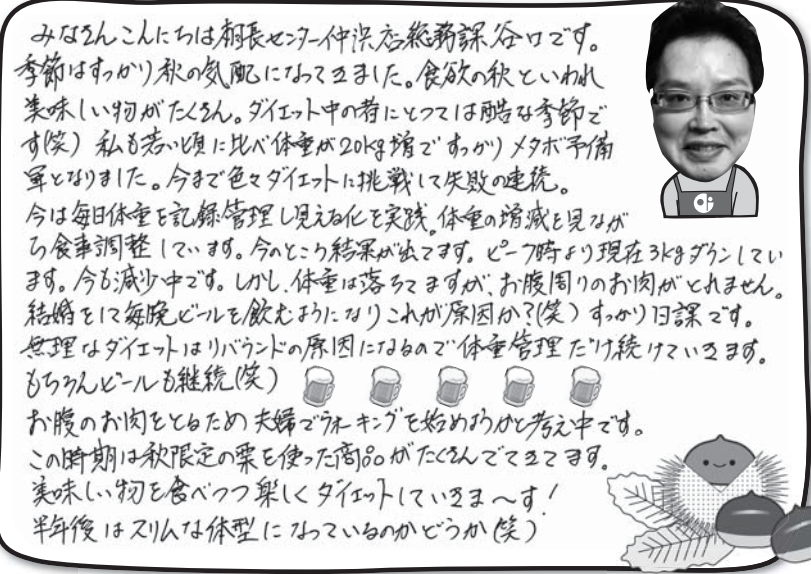 みなさんこんにちは相長センター仲浜店総務課谷口です。
季節はすっかり秋の気配になってきました。食欲の秋といわれ
美味しい物がたくさん。ダイエット中の者にとっては酷な季節で
す(笑) 私も若い頃に比べ体重が20kg増ですっかりメタボ予備
軍となりました。今まで色々ダイエットに挑戦して失敗の連続。
今は毎日体重を記録管理し見える化を実践。体重の増減を見なが
ら食事調整しています。今のところ結果が出てます。ピーク時より現在3kgダウンしてい
ます。今も減少中です。しかし、体重は落ちてますが、お腹周りのお肉がとれません。
結婚をして毎晩ビールを飲むようになりこれが原因か?(笑) すっかり日課です。
無理なダイエットはリバウンドの原因になるので体重管理だけ続けていきます。
もちろんビールも継続(笑)
お腹のお肉をとるため夫婦でウォーキングを始めようかと考え中です。
この時期は秋限定の栗を使った商品がたくさんでてきてます。
美味しい物を食べつつ楽しくダイエットしていきま〜す!
半年後はスリムな体型になっているのかどうか(笑)